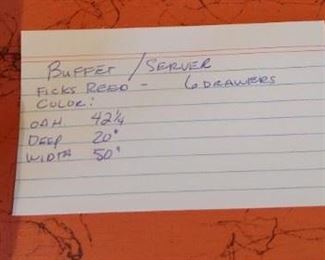 BUFFET / SERVER
FICKS REED - 6 DRAWERS
COLOR:
OAH 42 1/4
DEEP 20"
WIDTH 50"